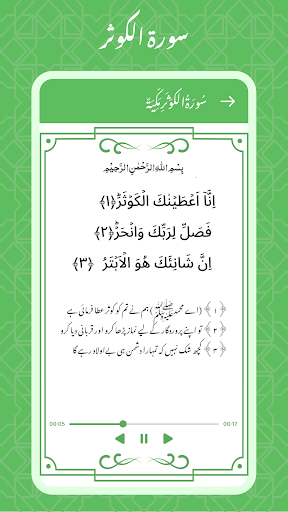 سورۃ الکوثر
سُوْرَةُ الْكَوْثَرِمَكِّيَّةٌ
بِسْمِ اللّٰهِ الرَّحْمٰنِ الرَّحِيْمِ
اِنَّآ اَعْطَيْنٰكَ الْكَوْثَرَؕ﴿۱﴾
فَصَلِّ لِرَبِّكَ وَانْحَرْؕ﴿۲﴾
اِنَّ شَانِئَكَ هُوَ الْاَبْتَرُ ﴿۳﴾
﴿۱﴾ (اے محمدﷺ) ہم نے تم کو کوثر عطا فرمائی ہے
﴿۲﴾ تو اپنے پروردگار کے لیے نماز پڑھا کرو اور قربانی دیا کرو
﴿۳﴾ کچھ شک نہیں کہ تمہارا دشمن ہی بے اولاد رہے گا
00:05 00:17